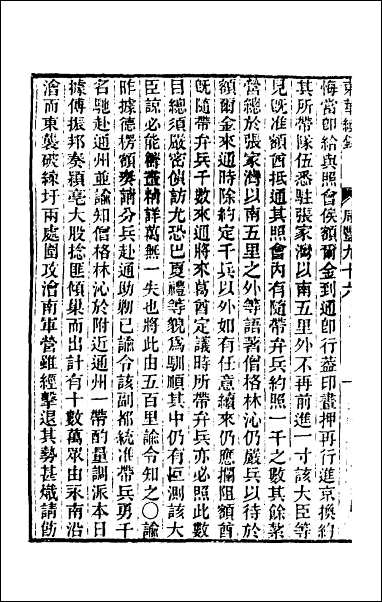 東華續錄 咸豐九十六 一
悔當卽給與照會俟額爾金到通卽行蓋印畫押再行進京換約
其所帶隊伍悉駐張家灣以南五里外不再前進一寸該大臣等
見旣准額酋抵通其照會內有隨帶弁兵約照一千之數其餘紮
營總於張家灣以南五里之外等語著僧格林沁仍嚴兵以待於
額爾金來通時除約定千兵以外如有任意續來仍應攔阻額酋
旣隨帶弁兵千數來通將來葛酋定議時所帶弁兵亦必照此數
目總須嚴密偵訪尤恐巴夏禮等貌爲馴順其中仍有叵測該大
臣諒必能籌畫精詳萬無一失也將此由五百里諭令知之○諭
昨據德楞額奏請分兵赴通助勦已諭令該副都統准帶兵勇千
名馳赴通州並諭知僧格林沁於附近通州一帶酌量調派本日
據傅振邦奏潁亳大股捻匪傾巢而出計有十數萬眾由永沿
澮而東襲破練圩兩處圍攻澮南軍營雖經擊退其勢甚熾請飭